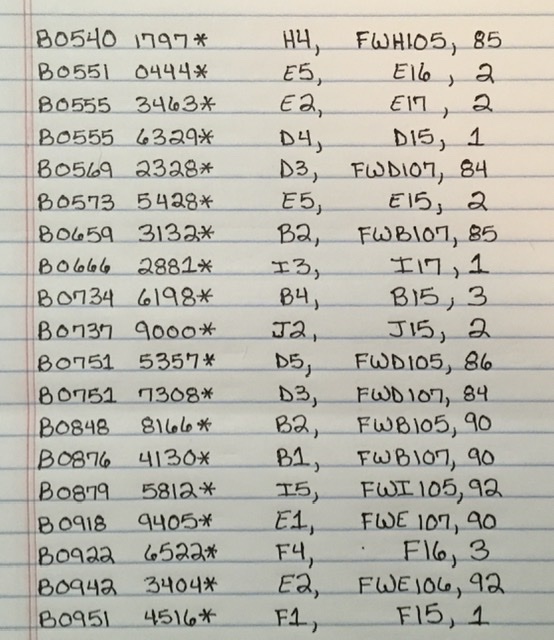 B0540 1797* H4, FWH105, 85
B0551 0444* E5, E16, 2
B0555 3463* E2, E17, 2
B0555 6329* D4, D15, 1
B0569 2328* D3, FWD107, 84
B0573 5428* E5, E15, 2
B0659 3132* B2, FWB107, 85
B0666 2881* I3, I17, 1
B0734 6198* B4, B15, 3
B0737 9000* J2, J15, 2
B0751 5357* D5, FWD105, 86
B0751 7308* D3, FWD107, 84
B0848 8166* B2, FWB105, 90
B0876 4130* B1, FWB107, 90
B0879 5812* I5, FWI105, 92
B0918 9405* E1, FWE107, 90
B0922 6522* F4, F16, 3
B0942 3404* E2, FWE106, 92
B0951 4516* F1, F15, 1